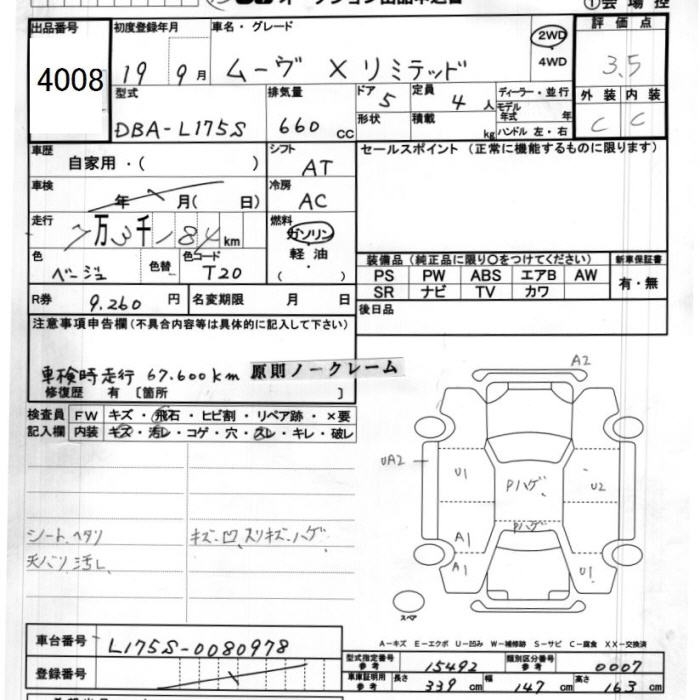 ① 会 場 控
出品番号 初度登録年月 車名・グレード 評 価 点
4008 19 年 9 月 ムーヴ X リミテッド 2WD 4WD 3.5
型式 排気量 ドア 定員 ディーラー・並行 外 装 内 装
DBA-L175S 660 cc 5 4 人 モデル年式 年 C C
形状 積載 kg ハンドル 左・右
車歴 シフト セールスポイント (正常に機能するものに限ります)
自家用・( ) AT
車検 冷房
年 月( 日) AC
走行 燃料
7万3千184 km ガソリン
色 色替 色コード 軽 油
ベージュ T20 ( )
装備品 (純正品に限り○をつけてください) 新車保証書
PS PW ABS エアB AW 有・無
SR ナビ TV カワ
R券 9,260 円 名変期限 月 日 後日品
注意事項申告欄(不具合内容等は具体的に記入して下さい)
車検時走行 67.600km 原則ノークレーム
修復歴 有 [箇所 ]
検査員 FW キズ・飛石・ヒビ割・リペア跡・×要
記入欄 内装 キズ・汚レ・コゲ・穴・スレ・キレ・破レ
A2
UA2 U1 Pハゲ U2
Pハゲ
A1
A1 U1
シートヘタリ キズ、凹、スリキズ、ハゲ
天バリ汚レ
スペア
A-キズ E-エクボ U-凹み W-補修跡 S-サビ C-腐食 XX-交換済
車台番号 L175S-0080978
登録番号
型式指定番号 参考 15492 類別区分番号 参考 0007
車庫証明用 参考 長さ 339 cm 幅 147 cm 高さ 163 cm